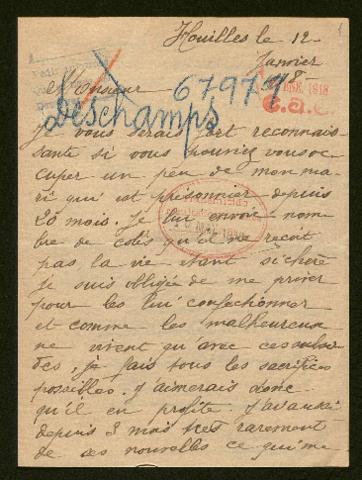 Houilles le 12
Janvier
1918
Monsieur
67979
Deschamps
Je vous serais fort reconnais
sante si vous pouviez vous oc
cuper un peu de mon ma
ri qui est prisonnier depuis
20 mois. Je lui envoie nom
bre de colis qu'il ne reçoit
pas la vie étant si chère
Je suis obligée de me priver
pour les lui confectionner
et comme les malheureux
ne vivent qu'avec ces
des, je fais tous les sacrifices
possibles. J'aimerais donc
qu'il en profite. J'ai aussi
depuis 3 mois très rarement
de ces nouvelles ce qui me